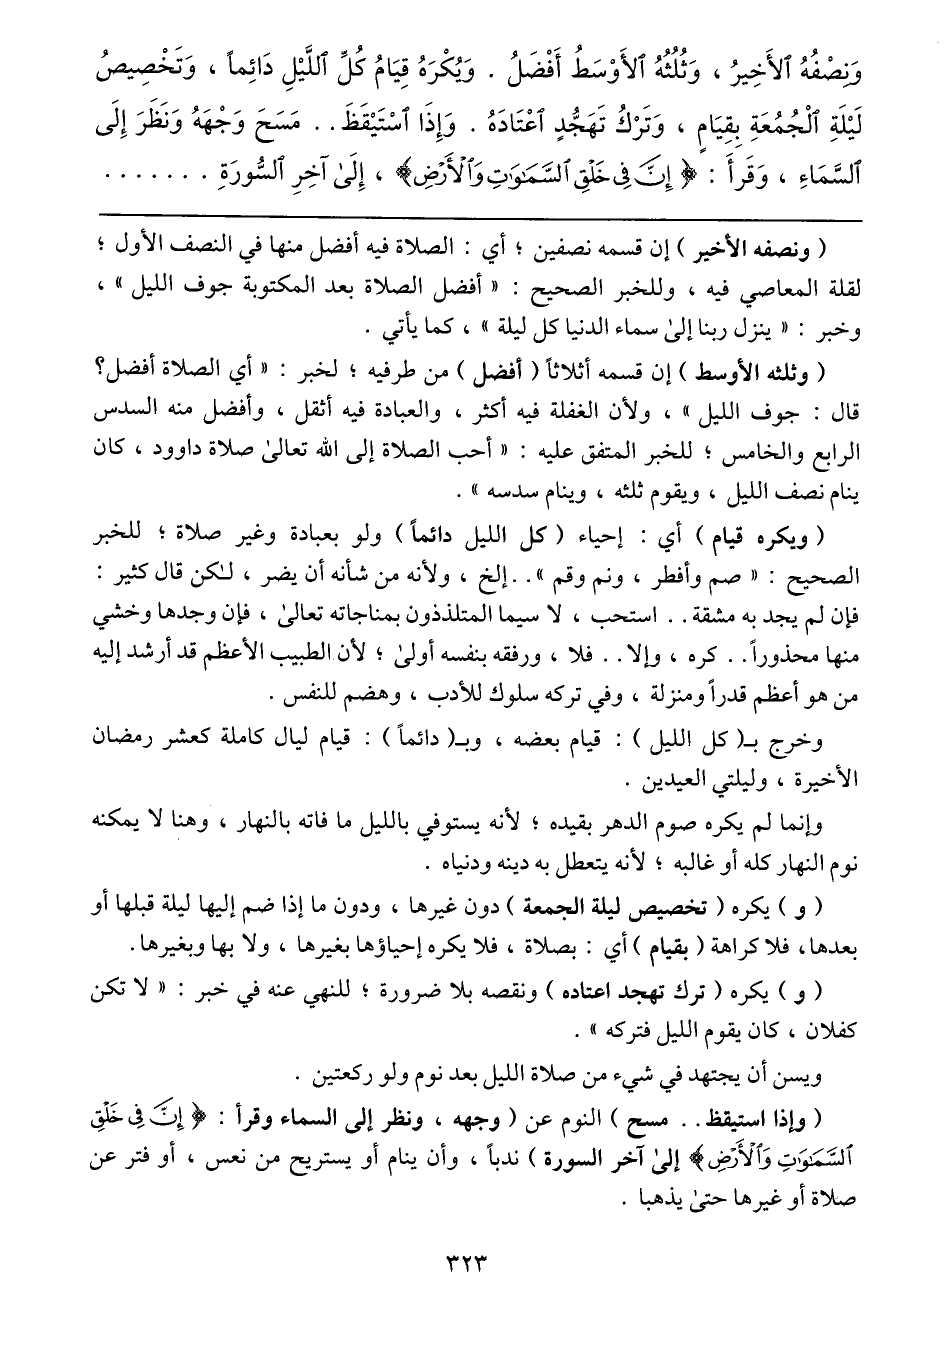 وَنِصْفُهُ ٱلأَخِيرُ ، وَثُلُثُهُ ٱلأَوْسَطُ أَفْضَلُ . وَيُكْرَهُ قِيَامُ كُلِّ ٱللَّيْلِ دَائِماً ، وَتَخْصِيصُ
لَيْلَةِ ٱلْجُمُعَةِ بِقِيَامٍ ، وَتَرْكُ تَهَجُّدٍ ٱعْتَادَهُ . وَإِذَا ٱسْتَيْقَظَ . . مَسَحَ وَجْهَهُ وَنَظَرَ إِلَى
ٱلسَّمَاءِ ، وَقَرَأَ : ﴿ إِنَّ فِى خَلْقِ ٱلسَّمَٰوَٰتِ وَٱلْأَرْضِ﴾ ، إِلَىٰ آخِرِ ٱلسُّورَةِ . . . . . . .
( ونصفه الأخير ) إن قسمه نصفين ؛ أي : الصلاة فيه أفضل منها في النصف الأول ؛
لقلة المعاصي فيه ، وللخبر الصحيح : « أفضل الصلاة بعد المكتوبة جوف الليل » ،
وخبر : « ينزل ربنا إلىٰ سماء الدنيا كل ليلة » ، كما يأتي .
( وثلثه الأوسط ) إن قسمه أثلاثاً ( أفضل ) من طرفيه ؛ لخبر : « أي الصلاة أفضل؟
قال : جوف الليل » ، ولأن الغفلة فيه أكثر ، والعبادة فيه أثقل ، وأفضل منه السدس
الرابع والخامس ؛ للخبر المتفق عليه : « أحب الصلاة إلى الله تعالىٰ صلاة داوود ، كان
ينام نصف الليل ، ويقوم ثلثه ، وينام سدسه » .
( ويكره قيام ) أي : إحياء ( كل الليل دائماً ) ولو بعبادة وغير صلاة ؛ للخبر
الصحيح : « صم وأفطر ، ونم وقم ». . إلخ ، ولأنه من شأنه أن يضر ، لـٰكن قال كثير :
فإن لم يجد به مشقة . . استحب ، لا سيما المتلذذون بمناجاته تعالىٰ ، فإن وجدها وخشي
منها محذوراً . . كره ، وإلا . . فلا ، ورفقه بنفسه أولىٰ ؛ لأن الطبيب الأعظم قد أرشد إليه
من هو أعظم قدراً ومنزلة ، وفي تركه سلوك للأدب ، وهضم للنفس .
وخرج بـ( كل الليل ) : قيام بعضه ، وبـ( دائماً ) : قيام ليال كاملة كعشر رمضان
الأخيرة ، وليلتي العيدين .
وإنما لم يكره صوم الدهر بقيده ؛ لأنه يستوفي بالليل ما فاته بالنهار ، وهنا لا يمكنه
نوم النهار كله أو غالبه ؛ لأنه يتعطل به دينه ودنياه .
( و ) يكره ( تخصيص ليلة الجمعة ) دون غيرها ، ودون ما إذا ضم إليها ليلة قبلها أو
بعدها، فلا كراهة ( بقيام ) أي : بصلاة ، فلا يكره إحياؤها بغيرها ، ولا بها وبغيرها.
( و ) يكره ( ترك تهجد اعتاده ) ونقصه بلا ضرورة ؛ للنهي عنه في خبر : « لا تكن
كفلان ، كان يقوم الليل فتركه » .
ويسن أن يجتهد في شيء من صلاة الليل بعد نوم ولو ركعتين .
( وإذا استيقظ . . مسح ) النوم عن ( وجهه ، ونظر إلى السماء وقرأ : ﴿ إِنَّ فِى خَلْقِ
ٱلسَّمَٰوَٰتِ وَٱلْأَرْضِ﴾ إلىٰ آخر السورة ) ندباً ، وأن ينام أو يستريح من نعس ، أو فتر عن
صلاة أو غيرها حتىٰ يذهبا .
٣٢٣